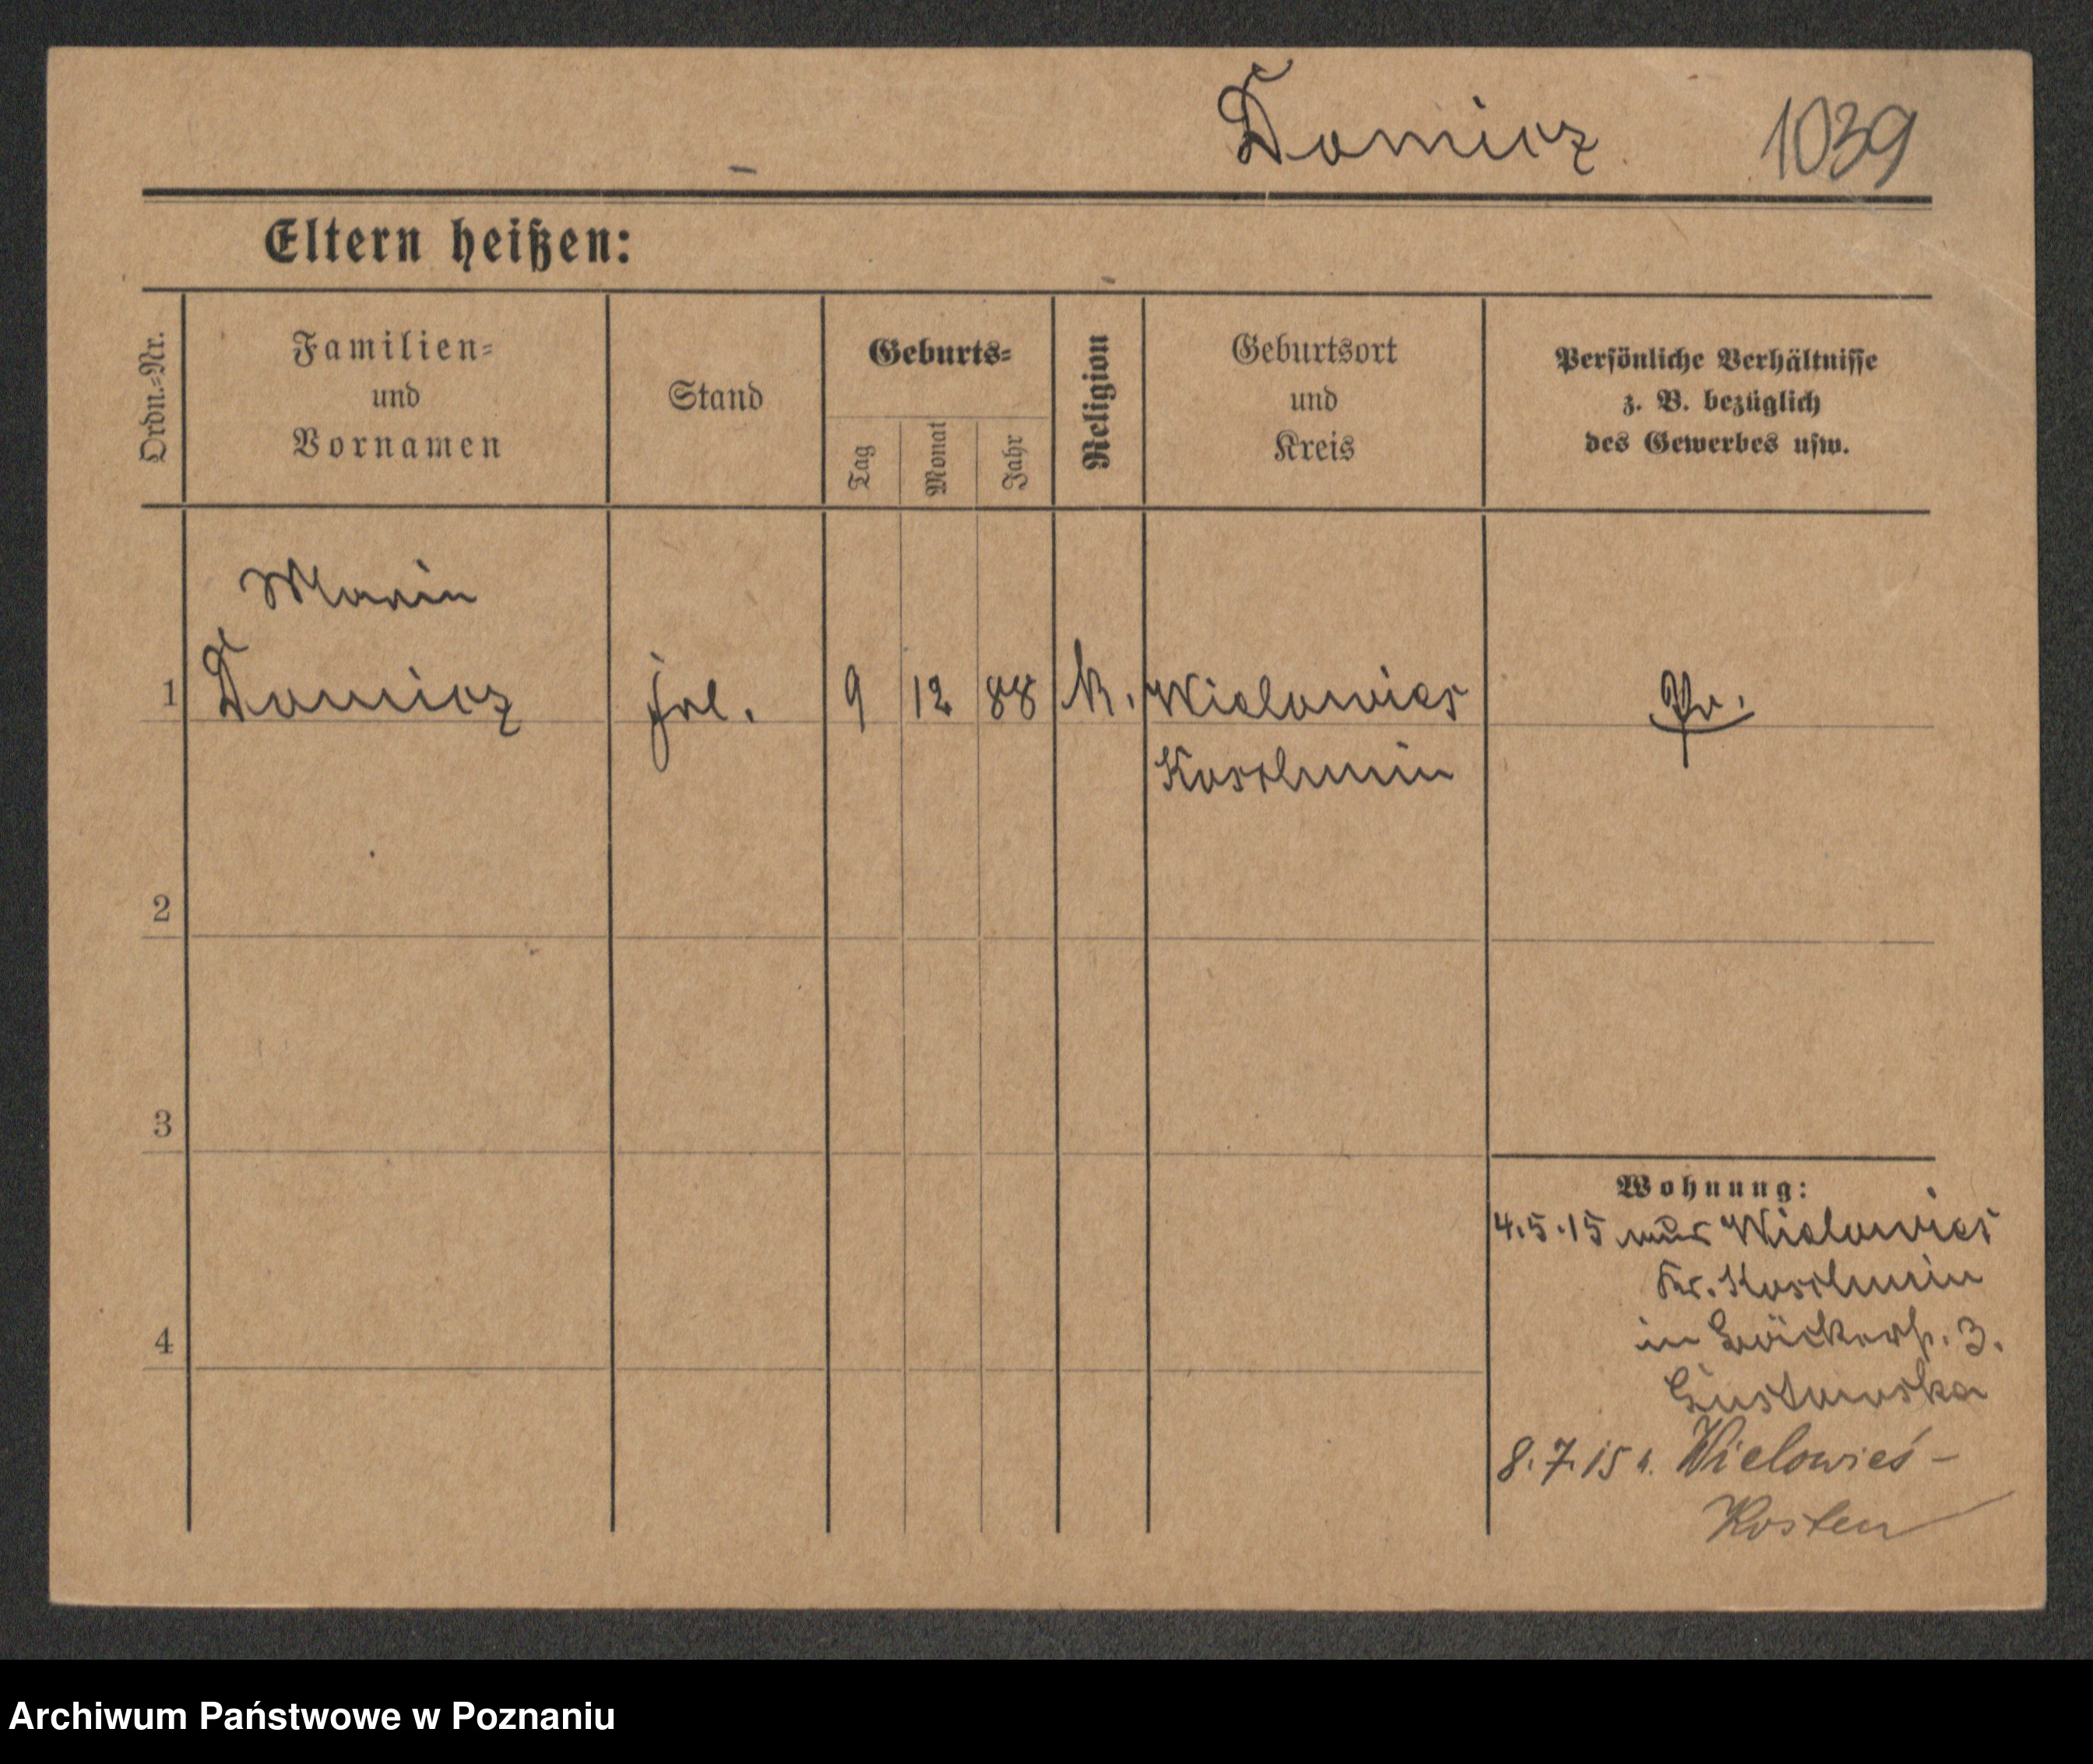 Domicz 1039
Eltern heißen:
Ordn.=Nr.
Familien=
und
Vornamen
Stand
Geburts=
Tag
Monat
Jahr
Religion
Geburtsort
und
Kreis
Persönliche Verhältnisse
z. B. bezüglich
des Gewerbes usw.
Maria
1 Domicz frl. 9 12 88 k. Wielowies Pr.
Koschmin
2
3
4
Wohnung:
4.5.15 aus Wielowies
Kr. Koschmin
in Bäckerst. 3.
Gustowska
8.7.15 n. Wielowieś -
Kosten
Archiwum Państwowe w Poznaniu